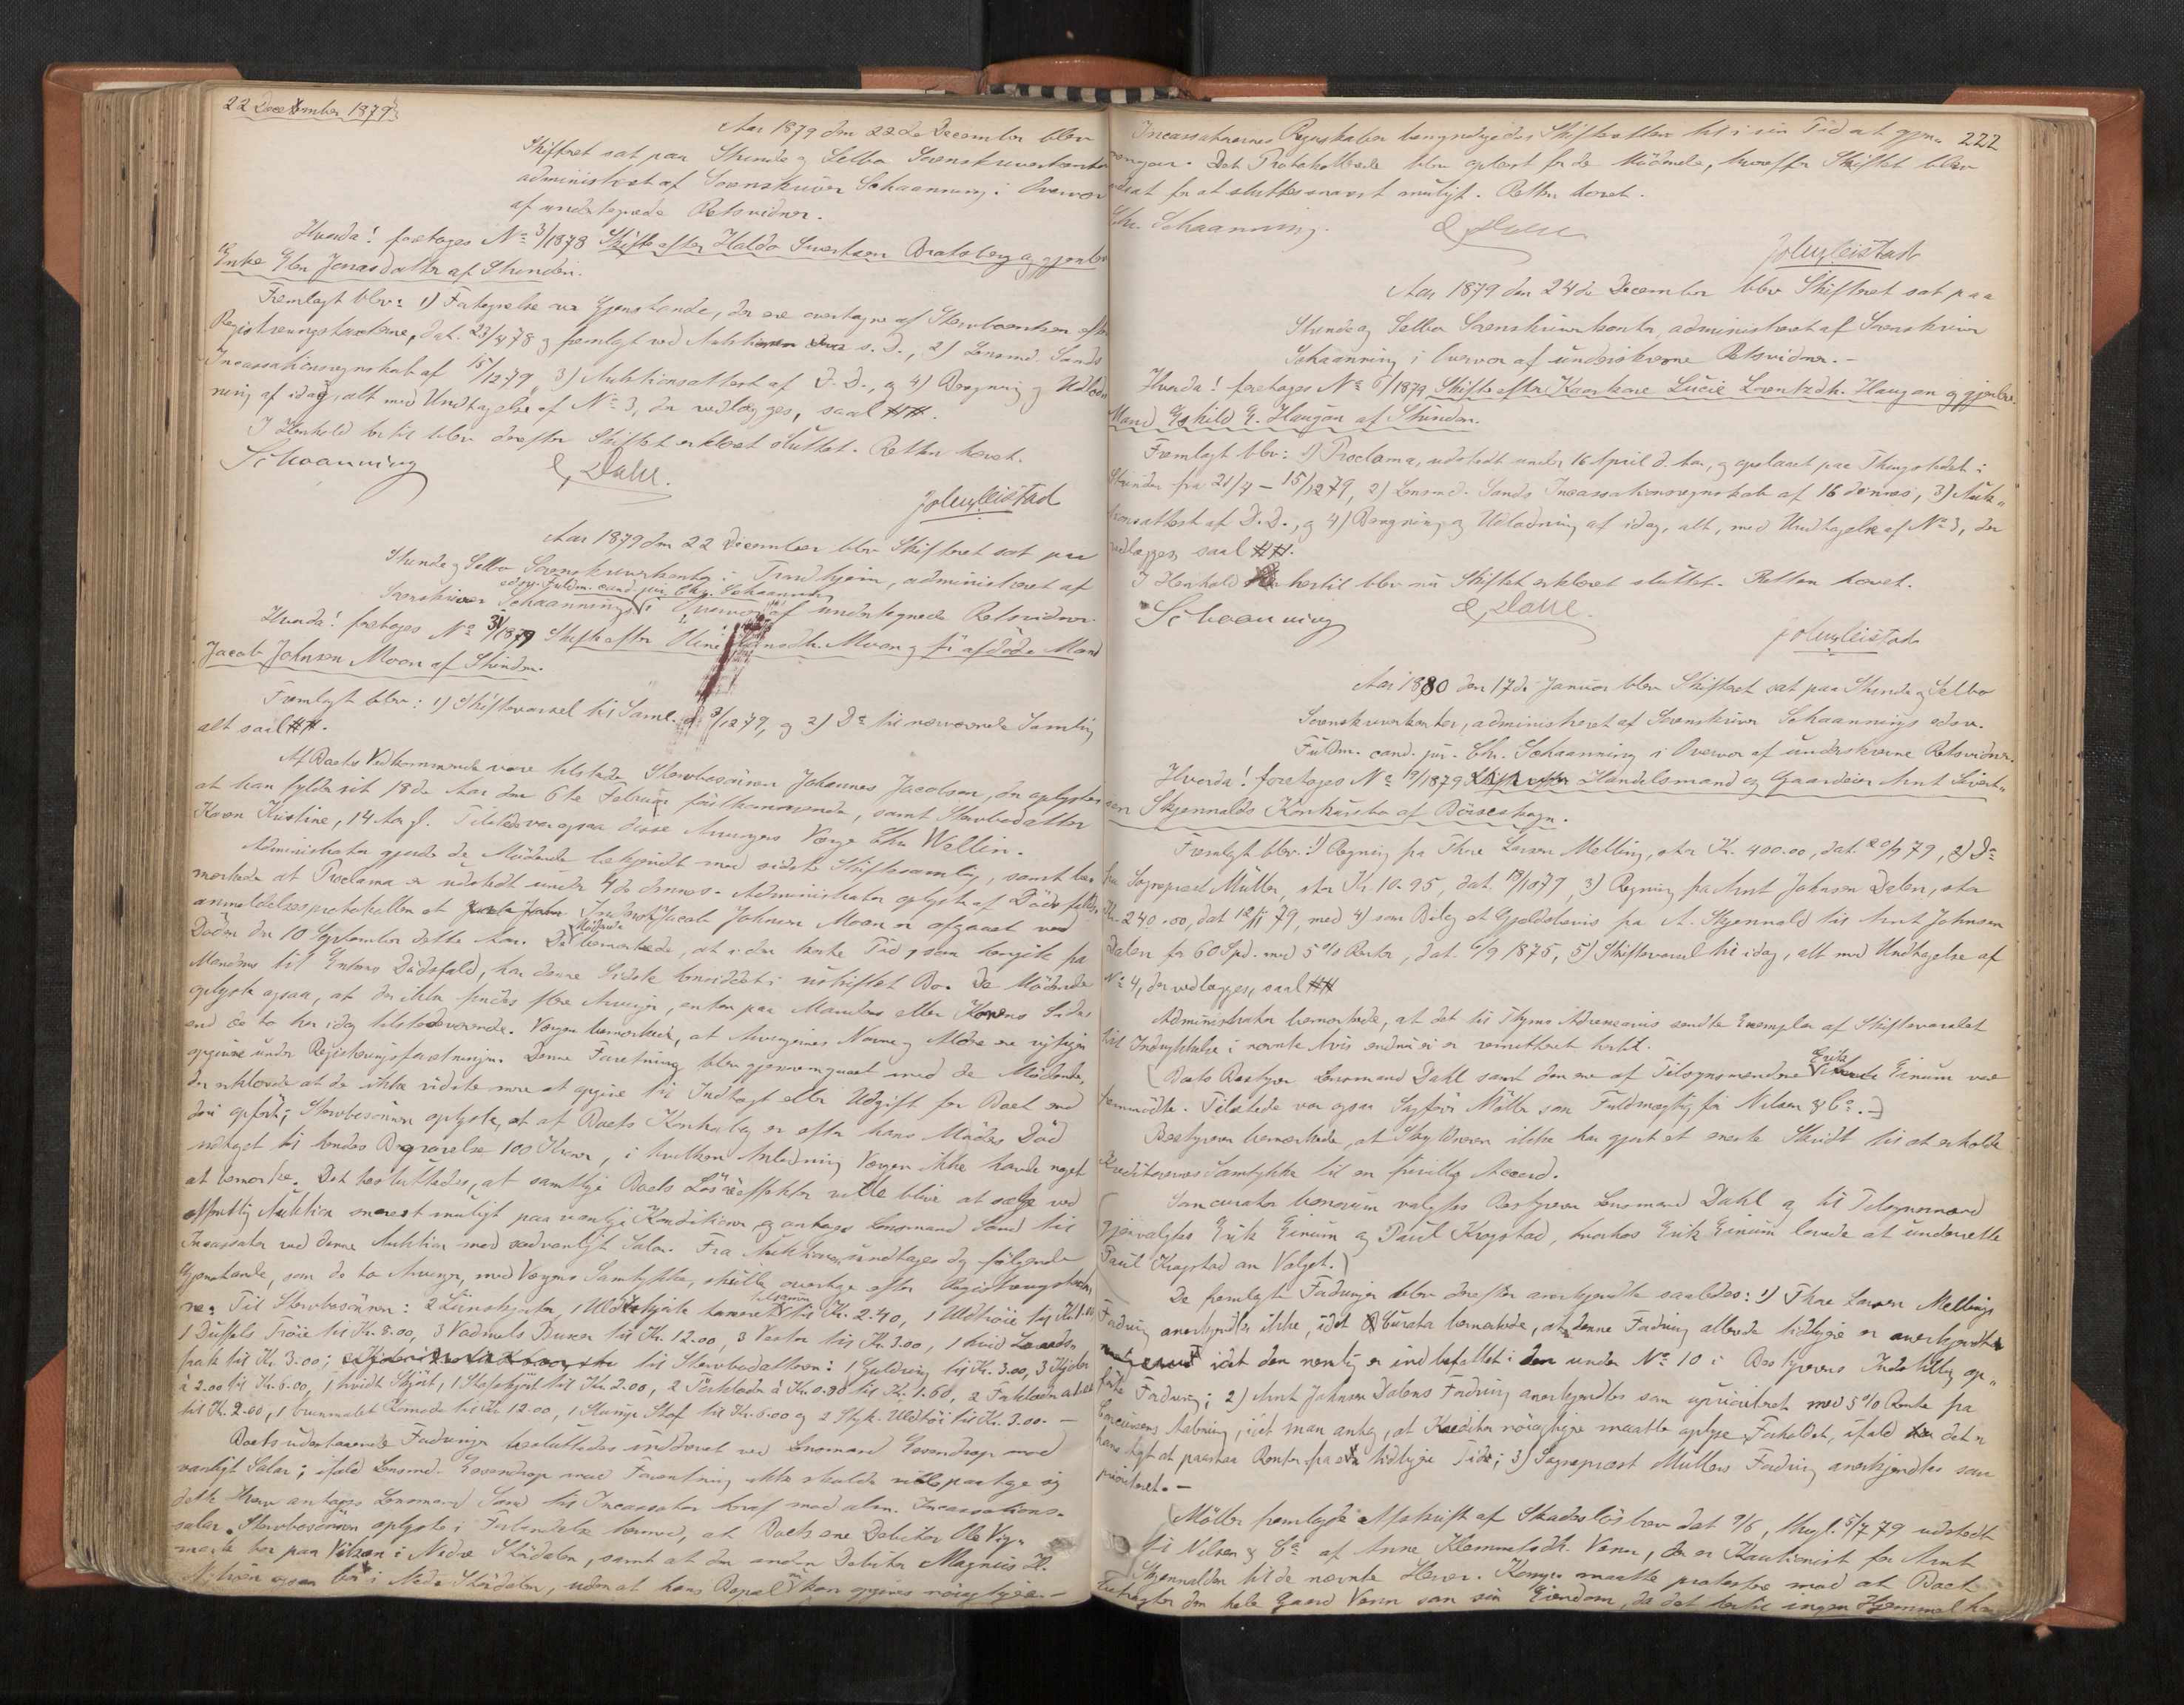 22 December 1879
Aar 1879 den 22de December blev
Skifteret sat paa Strinde og Selbo Sorenskriverkontor
administreret af Sorenskriver Schaanning i Overvær
af undertegnede Retsvidner.
Hvorda! foretoges No 3/1878 Skifte efter Haldo Sivertsen Bratsberg og gjenlev.
Enke Elen Jonasdatter af Strinden.
Fremlagt blev: 1) Fortegnelse over Gjenstande, der ere overtagne af Stervboenken efter
Registreringstaxterne, dat. 23/4 78 og fremlagt ved Auktionen s. D., 2) Lensmd. Sands
Incassationsregnskab af 15/12 79, 3) Auktionsattest af D. D., og 4) Beregning og Udlod-
ning af idag, alt med Undtagelse af No 3, der vedlægges, saal ##.
I Henhold hertil blev derefter Skiftet erklæret sluttet. Retten hævet.
Schaanning
E. Dahl.
Joh. Leistad
Aar 1879 den 22 December blev Skifteret sat paa
Strinde og Selbo Sorenskriverkontor i Trondhjem, administreret af
edsv. Fuldm. cand. jur. Chr. Schaanning
Sorenskriver Schaannings i Overvær af undertegnede Retsvidner.
Hvorda! foretoges No 31/1879 Skifte efter Oline Hansdtr. Moan og før afdøde Mand
Jacob Johnsen Moan af Strinden.
Fremlagt blev: 1) Skiftevarsel til Saml. d. 3/12 79, og 2) Do til nærværende Samling
alt saal ##.
Af Boets Vedkommende vare tilstede Stervbosønnen Johannes Jacobsen, der oplyster
at han fylder sit 18de Aar den 6te Februar førstkommende, samt Stervbodatter
Karen Kristine, 14 Aar gl. Tilstede var ogsaa disse Arvingers Værge Chr. Wellin.
Administrator gjorde de Mødende bekjendt med sidste Skiftesamling, samt be-
mærkede at Proclama er udstedt under 4de dennes. Administrator oplyste af Dødsfalds-
anmeldelsesprotokollen at Inderst Jacob Johnsen Moan er afgaaet ved
Døden den 10 September dette Aar. De Mødende bemærkede, at i den korte Tid som hengik fra
Mandens til Enkens Dødsfald, har denne Sidste henriddet i uskiftet Bo. De Mødende
oplyste ogsaa, at der ikke findes flere Arvinger, enten paa Mandens eller Konens Side
end de to her idag tilstedeværende. Værgen bemærkede, at Arvingernes Navne og Aldre ere rigtigen
opgivne under Registreringsforretningen. Denne Forretning blev gjennemgaaet med de Mødende,
der erklærede at de ikke vidste mere at opgive til Indtægt eller Udgift for Boet end
deri opført; Stervbosønnen oplyste, at af Boets Kontanter er efter hans Moders Død
udtaget til hendes Begravelse 100 Kroner, i hvilken Anledning Værgen ikke havde noget
at bemærke. Det besluttedes, at samtlige Boets Løsøreeffekter ville blive at sælge ved
offentlig Auktion snarest muligt paa vanlige Konditioner og antages Lensmand Sand til
Incassator ved denne Auktion mod sædvanligt Salær. Fra Auktionen undtages dog følgende
Gjenstande, som de to Arvinger, med Værgens Samtykke, skulle overtage efter Registreringstaxter-
ne. Til Stervbosønnen: 2 Linskjorter, 1 Uldskjorte tilsammen til Kr. 2.40, 1 Uldtrøie til Kr. 1.00
1 Duffels Trøie til Kr. 8.00, 3 Vadmels Buxer til Kr. 12.00, 3 Veste til Kr. 3.00, 1 hvid
frak til Kr. 3.00; til Stervbodatteren: 1 Guldring til Kr. 3.00, 3 Kjoler
à 2.00 til Kr. 6.00, 1 hvidt Skjørt, 1 Stofskjørt til Kr. 2.00, 2 Tørklæder à Kr. 0.80 til Kr. 1.60, 2 Forklæder
til Kr. 2.00, 1 brunmalet Komode til Kr. 12.00, 1 Stump Stof til Kr. 6.00 og 2 Styk. Uldtøi til Kr. 3.00.—
Boets udestaaende Fordringer besluttedes inddrevet ved Lensmand Essendrop mod
vanligt Salær; ifald Lensmd. Essendrop mod Forventning ikke skulde ville paatage sig
dette Hverv antages Lensmand Sand til Incassator heraf mod alm. Incassations-
salær. Stervbosønnen oplyste i Forbindelse hermed, at Boets ene Debitor Ole Vig-
mark bor paa i Nedre Stjørdalen, samt at den anden Debitor Magnus H.
ogsaa bor i Nedre Stjørdalen, uden at hans Bopæl kan opgives nøiagtigere.—
222
Incassatorernes Regnskaber bemyndigedes Skifteretten til i sin Tid at gjen-
nemgaa. Det Protokollerede blev oplæst for de Mødende, hvorefter Skiftet blev
udsat for at sluttes snarest muligt. Retten hævet.
Chr. Schaanning.
E. Dahl
Joh. Leistad
Aar 1879 den 24de December blev Skifteret sat paa
Strinde og Selbo Sorenskriverkontor, administreret af Sorenskriver
Schaanning i Overvær af underskrevne Retsvidner.—
Hvorda! foretoges No 6/1879 Skifte efter Kaarkone Lucie Lorentzdtr. Haugan og gjenlev.
Mand Eskild E. Haugan af Strinden.
Fremlagt blev: 1) Proclama, udstedt under 16 April d. Aar, og opslaaet paa Thingstedet i
Strinden fra 21/4 – 15/12 79, 2) Lensmd. Sands Incassationsregnskab af 16 dennes, 3) Auk-
tionsattest af D. D., og 4) Beregning og Udlodning af idag, alt, med Undtagelse af No 3, der
vedlægges, saal ##.
I Henhold hertil blev nu Skiftet erklæret sluttet. Retten hævet.
Schaanning
E. Dahl.
Joh. Leistad
Aar 1880 den 17de Januar blev Skifteret sat paa Strinde og Selbo
Sorenskriverkontor, administreret af Sorenskriver Schaannings edsv.
Fuldm. cand. jur. Chr. Schaanning i Overvær af underskrevne Retsvidner.
Hvorda! foretoges No 19/1879 Handelsmand og Gaardeier Arnt Sivert-
sen Skjennalds Konkursbo af Børseskogn.
Fremlagt blev: 1) Regning fra Thore Larsen Melling, stor Kr. 400.00, dat. 20/9 79, 2) Do
fra Sogneprest Müller, stor Kr. 10.95, dat. 19/10 79, 3) Regning fra Arnt Johnsen Dalen, stor
Kr. 240.00, dat 12/11 79, med 4) som Bilag et Gjeldsbevis fra A. Skjennald til Arnt Johnsen
Dalen for 60 Spd. med 5% Renter, dat. 6/9 1875, 5) Skiftevarsel til idag, alt med Undtagelse af
No 4, der vedlægges, saal ##
Administrator bemærkede, at det til Thjems Adresseavis sendte Exemplar af Skiftevarslet
til Indrykkelse i nævnte Avis endnu ei er remitteret hertil.
Boets Bestyrer Lensmand Dahl samt den ene af Tilsynsmændene Erik Einum var
fremmødte. Tilstede var ogsaa Sagfører Møller som Fuldmægtig for Nilsen & Co.—
Bestyreren bemærkede, at Skyldneren ikke har gjort et eneste Skridt til at erholde
Kreditorernes Samtykke til en frivillig Accord.
Som curator bonorum valgtes Bestyreren Lensmand Dahl og til Tilsynsmænd
gjenvalgtes Erik Einum og Paul Krogstad, hvorhos Erik Einum lovede at underrette
Paul Krogstad om Valget.
De fremlagte Fordringer blev derefter anerkjendte saaledes: 1) Thore Larsen Mellings
Fordring anerkjendtes ikke, idet Curator bemærkede, at denne Fordring allerede tidligere er anerkjendt
idet den nemlig er indbefattet i den under No 10 i Bestyrerens Indstilling op-
førte Fordring; 2) Arnt Johnsen Dalens Fordring anerkjendtes som uprioriteret med 5% Rente fra
Concursens Aabning, idet man antog, at Kreditor nøiagtigere maatte oplyse Forholdet, ifald det er
hans Agt at paastaa Renter fra et tidligere Tidp; 3) Sogneprest Müllers Fordring anerkjendtes som
prioriteret.—
Møller fremlagde Afskrift af Skadesløsbrev dat 9/6, thingl. 5/7 79 udstedt
til Nilsen & Co af Anne Klemmetsdtr. Venn, der er Kautionist for Arnt
Skjennalden til de nævnte Herrer. Komp. maatte protestere mod at Boet
betragter den hele Gaard Venn som sin Eiendom, da det hertil ingen Hjemmel har